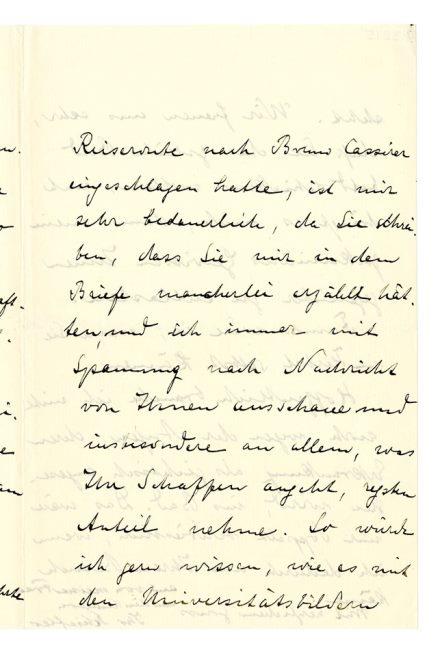 Reiseroute nach Bruno Cassirer
eingeschlagen hatte, ist mir
sehr bedauerlich, da Sie schrei-
ben, dass Sie mir in dem
Briefe mancherlei erzählt hät-
ten, und ich immer mit
Spannung nach Nachricht
von Ihnen ausschaue und
insbesondere an allem, was
Ihr Schaffen angeht, regsten
Anteil nehme. So würde
ich gern wissen, wie es mit
den Universitätsbildern